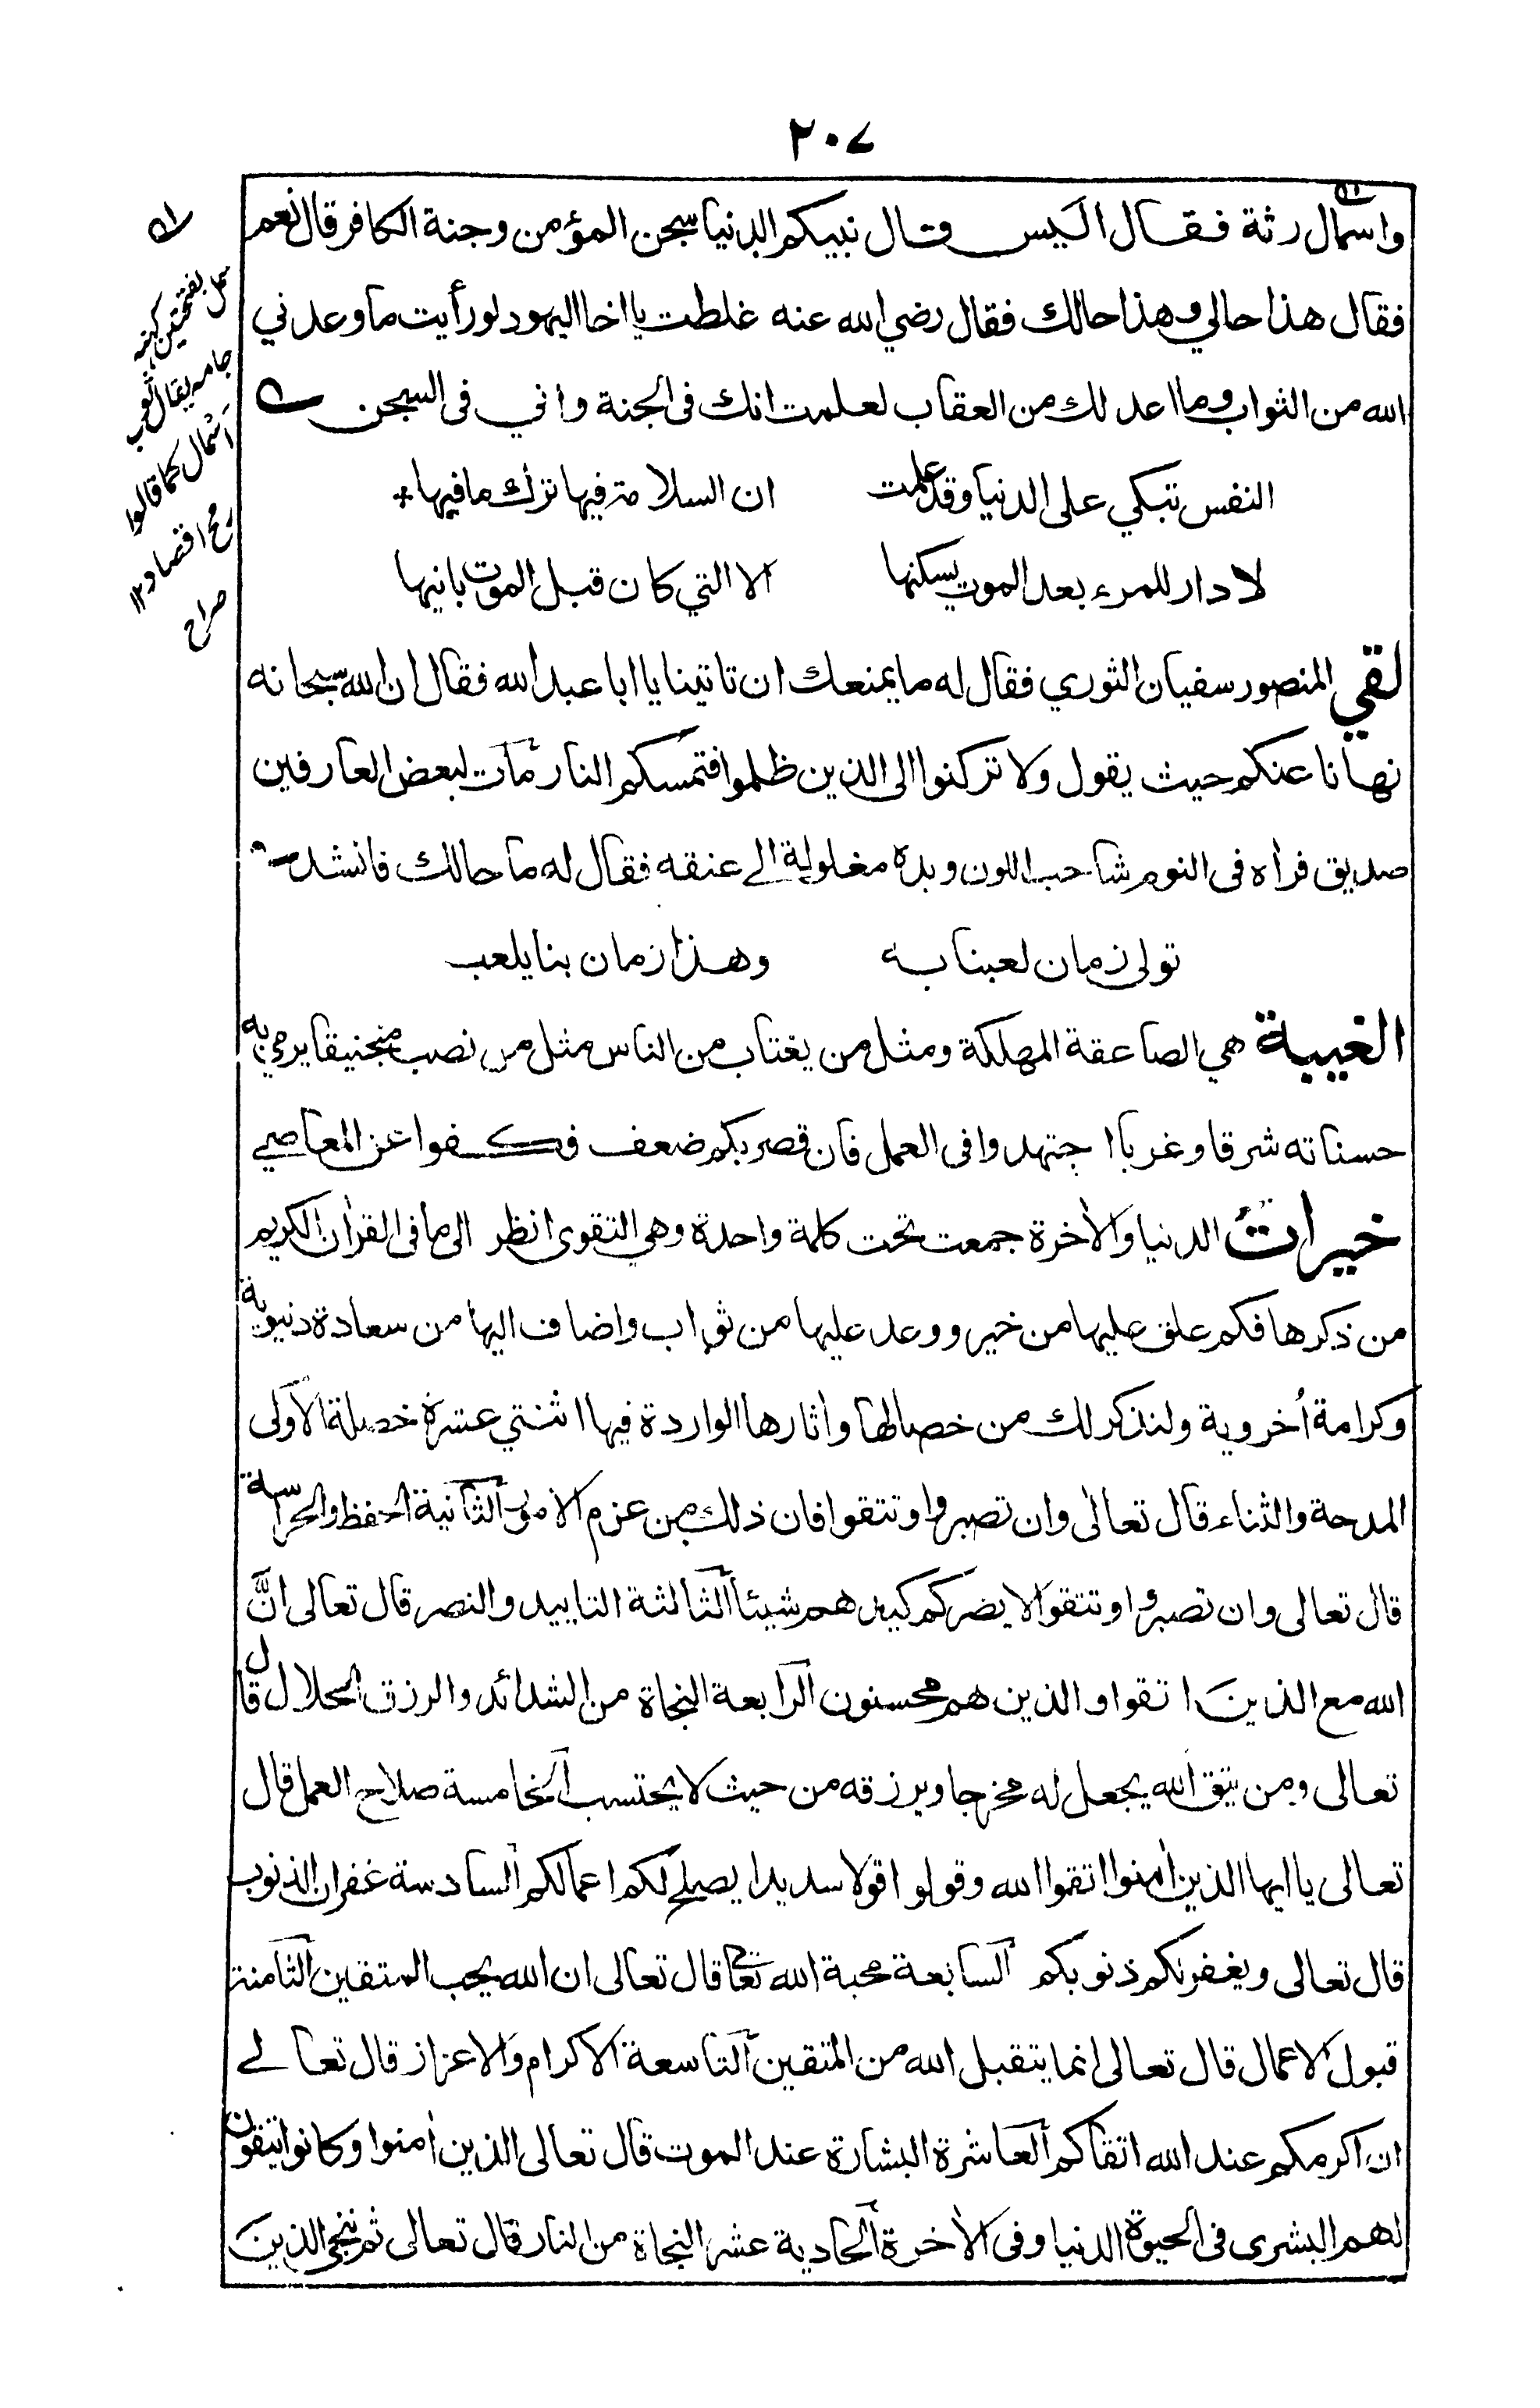 ٢٠٧
واسمال رثة فقال اليس قال نبيكم الدنيا سجن المؤمن وجنة الكافر قال نعم
فقال هذا حالي وهذا حالك فقال رضي الله عنه غلطت يا اخا اليهود لو رأيت ما وعدني
الله من الثواب وما اعد لك من العقاب لعلمت انك فى الجنة واني فى السجن
النفس تبكي على الدنيا وقد علمت ان السلامة فيها ترك ما فيها
لا دار للمرء بعد الموت يسكنها الا التي كان قبل الموت بانيها
لقي المنصور سفيان الثوري فقال له ما يمنعك ان تاتينا يا ابا عبد الله فقال ان الله سبحانه
نهانا عنكم حيث يقول ولا تركنوا الى الذين ظلموا فتمسكم النار مات لبعض العارفين
صديق فراه فى النوم شاحب اللون ويده مغلولة الے عنقه فقال له ما حالك فانشد
تولى زمان لعبنا به وهذا زمان بنا يلعب
الغيبة هي الصاعقة المهلكة ومثل من يغتاب من الناس مثل من نصب منجنيقا يرمي به
حسناته شرقا وغربا اجتهدوا فى العمل فان قصر بكم ضعف فكفوا عن المعاصے
خيرات الدنيا والاخرة جمعت تحت كلمة واحدة وهي التقوى انظر الى ما فى القرآن الكريم
من ذكرها فكم علق عليها من خير ووعد عليها من ثواب واضاف اليها من سعادة دنيوية
وكرامة أخروية ولنذكر لك من خصالها وآثارها الواردة فيها اثنتي عشرة خصلة الأولى
المدحة والثناء قال تعالى وان تصبروا وتتقوا فان ذلك من عزم الامور الثانية الحفظ والحراسة
قال تعالى وان تصبروا وتتقوا لا يضركم كيدهم شيئا الثالثة التاييد والنصر قال تعالى انّ
الله مع الذين اتقوا والذين هم محسنون الرابعة النجاة من الشدائد والرزق الحلال قال
تعالى ومن يتق الله يجعل له مخرجا ويرزقه من حيث لا يحتسب الخامسة صلاح العمل قال
تعالى يا ايها الذين امنوا اتقوا الله وقولوا قولا سديدا يصلح لكم اعمالكم السادسة غفران الذنوب
قال تعالى ويغفر لكم ذنوبكم السابعة محبة الله تعالى قال تعالى ان الله يحب المتقين الثامنة
قبول الاعمال قال تعالى انما يتقبل الله من المتقين التاسعة الاكرام والاعزاز قال تعالے
ان اكرمكم عند الله اتقاكم العاشرة البشارة عند الموت قال تعالى الذين امنوا وكانوا يتقون
لهم البشرى فى الحيوة الدنيا وفى الاخرة الحادية عشر النجاة من النار قال تعالى ثم ننجي الذين
سمل بفتحتين كهنه
جامه يقال ثوب
اسمال كما قالوا
رمح اقصاد ١٢
صراح